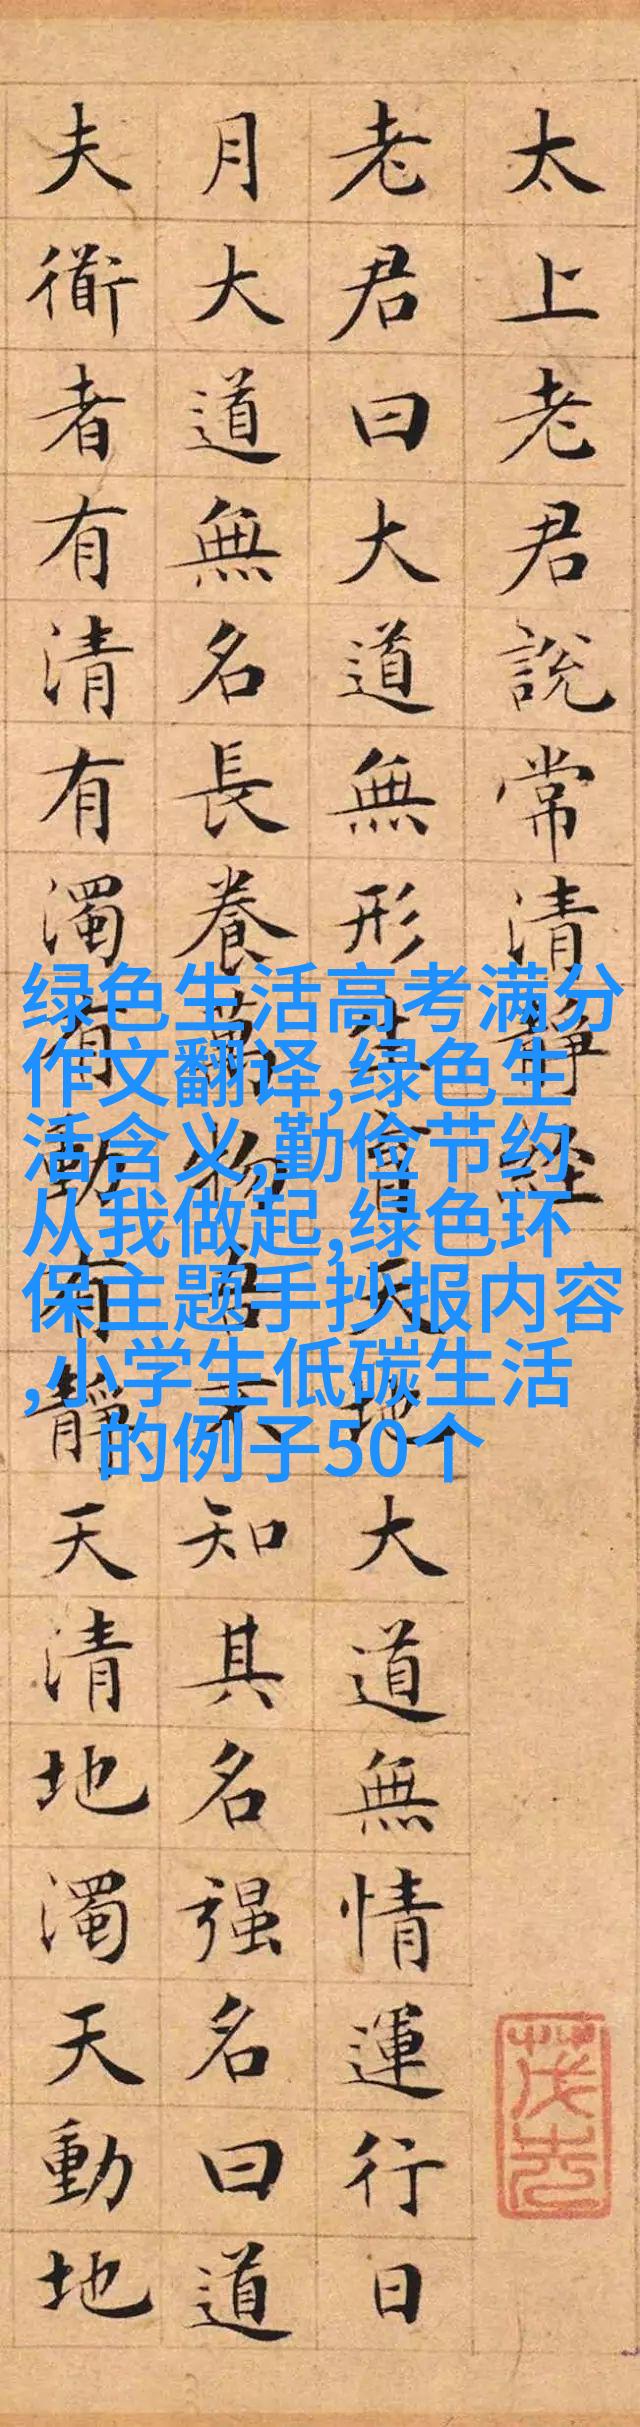 太上老君說常清靜經
老君曰大道無形生育天地大道無情運行日
月大道無名長養萬物吾不知其名强名曰道
夫衜者有清有濁有動有靜天清地濁天動地
绿色生活高考满分
作文翻译,绿色生
活含义,勤俭节约
从我做起,绿色环
保主题手抄报内容
,小学生低碳生活
的例子50个